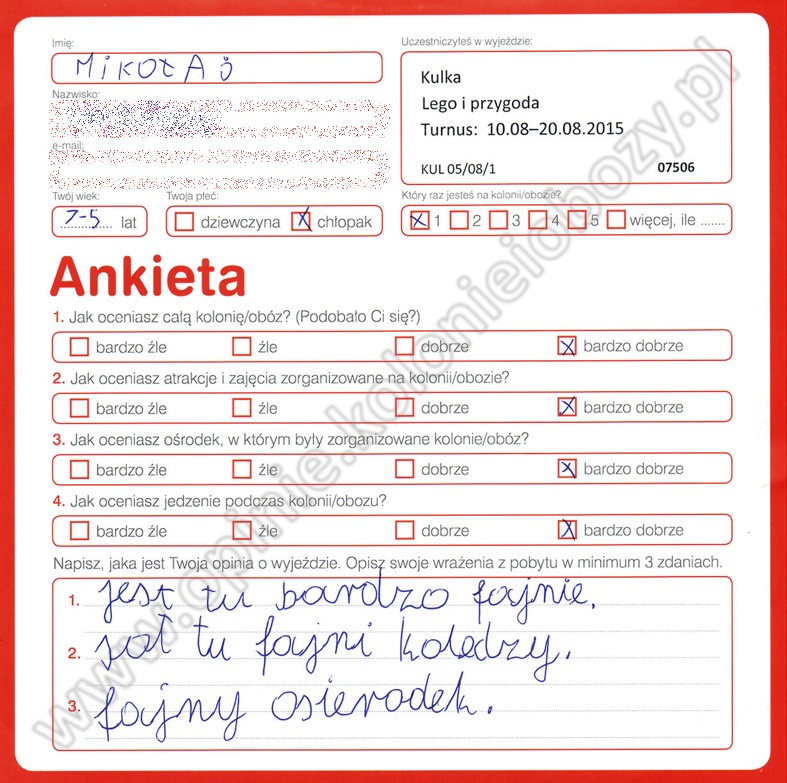 Imię:
MiKOŁAJ
Uczestniczyłeś w wyjeździe:
Kulka
Lego i przygoda
Turnus: 10.08–20.08.2015
KUL 05/08/1 07506
Nazwisko:
e-mail:
Twój wiek:
7-5 lat
Twoja płeć:
dziewczyna X chłopak
Który raz jesteś na kolonii/obozie?
X 1 2 3 4 5 więcej, ile .......
Ankieta
1. Jak oceniasz całą kolonię/obóz? (Podobało Ci się?)
bardzo źle źle dobrze X bardzo dobrze
2. Jak oceniasz atrakcje i zajęcia zorganizowane na kolonii/obozie?
bardzo źle źle dobrze X bardzo dobrze
3. Jak oceniasz ośrodek, w którym były zorganizowane kolonie/obóz?
bardzo źle źle dobrze X bardzo dobrze
4. Jak oceniasz jedzenie podczas kolonii/obozu?
bardzo źle źle dobrze X bardzo dobrze
Napisz, jaka jest Twoja opinia o wyjeździe. Opisz swoje wrażenia z pobytu w minimum 3 zdaniach.
1. jest tu bardzo fajnie.
2. tu fajni koledzy.
3. fajny osierodek.
www.opinie.kolonieiobozy.pl